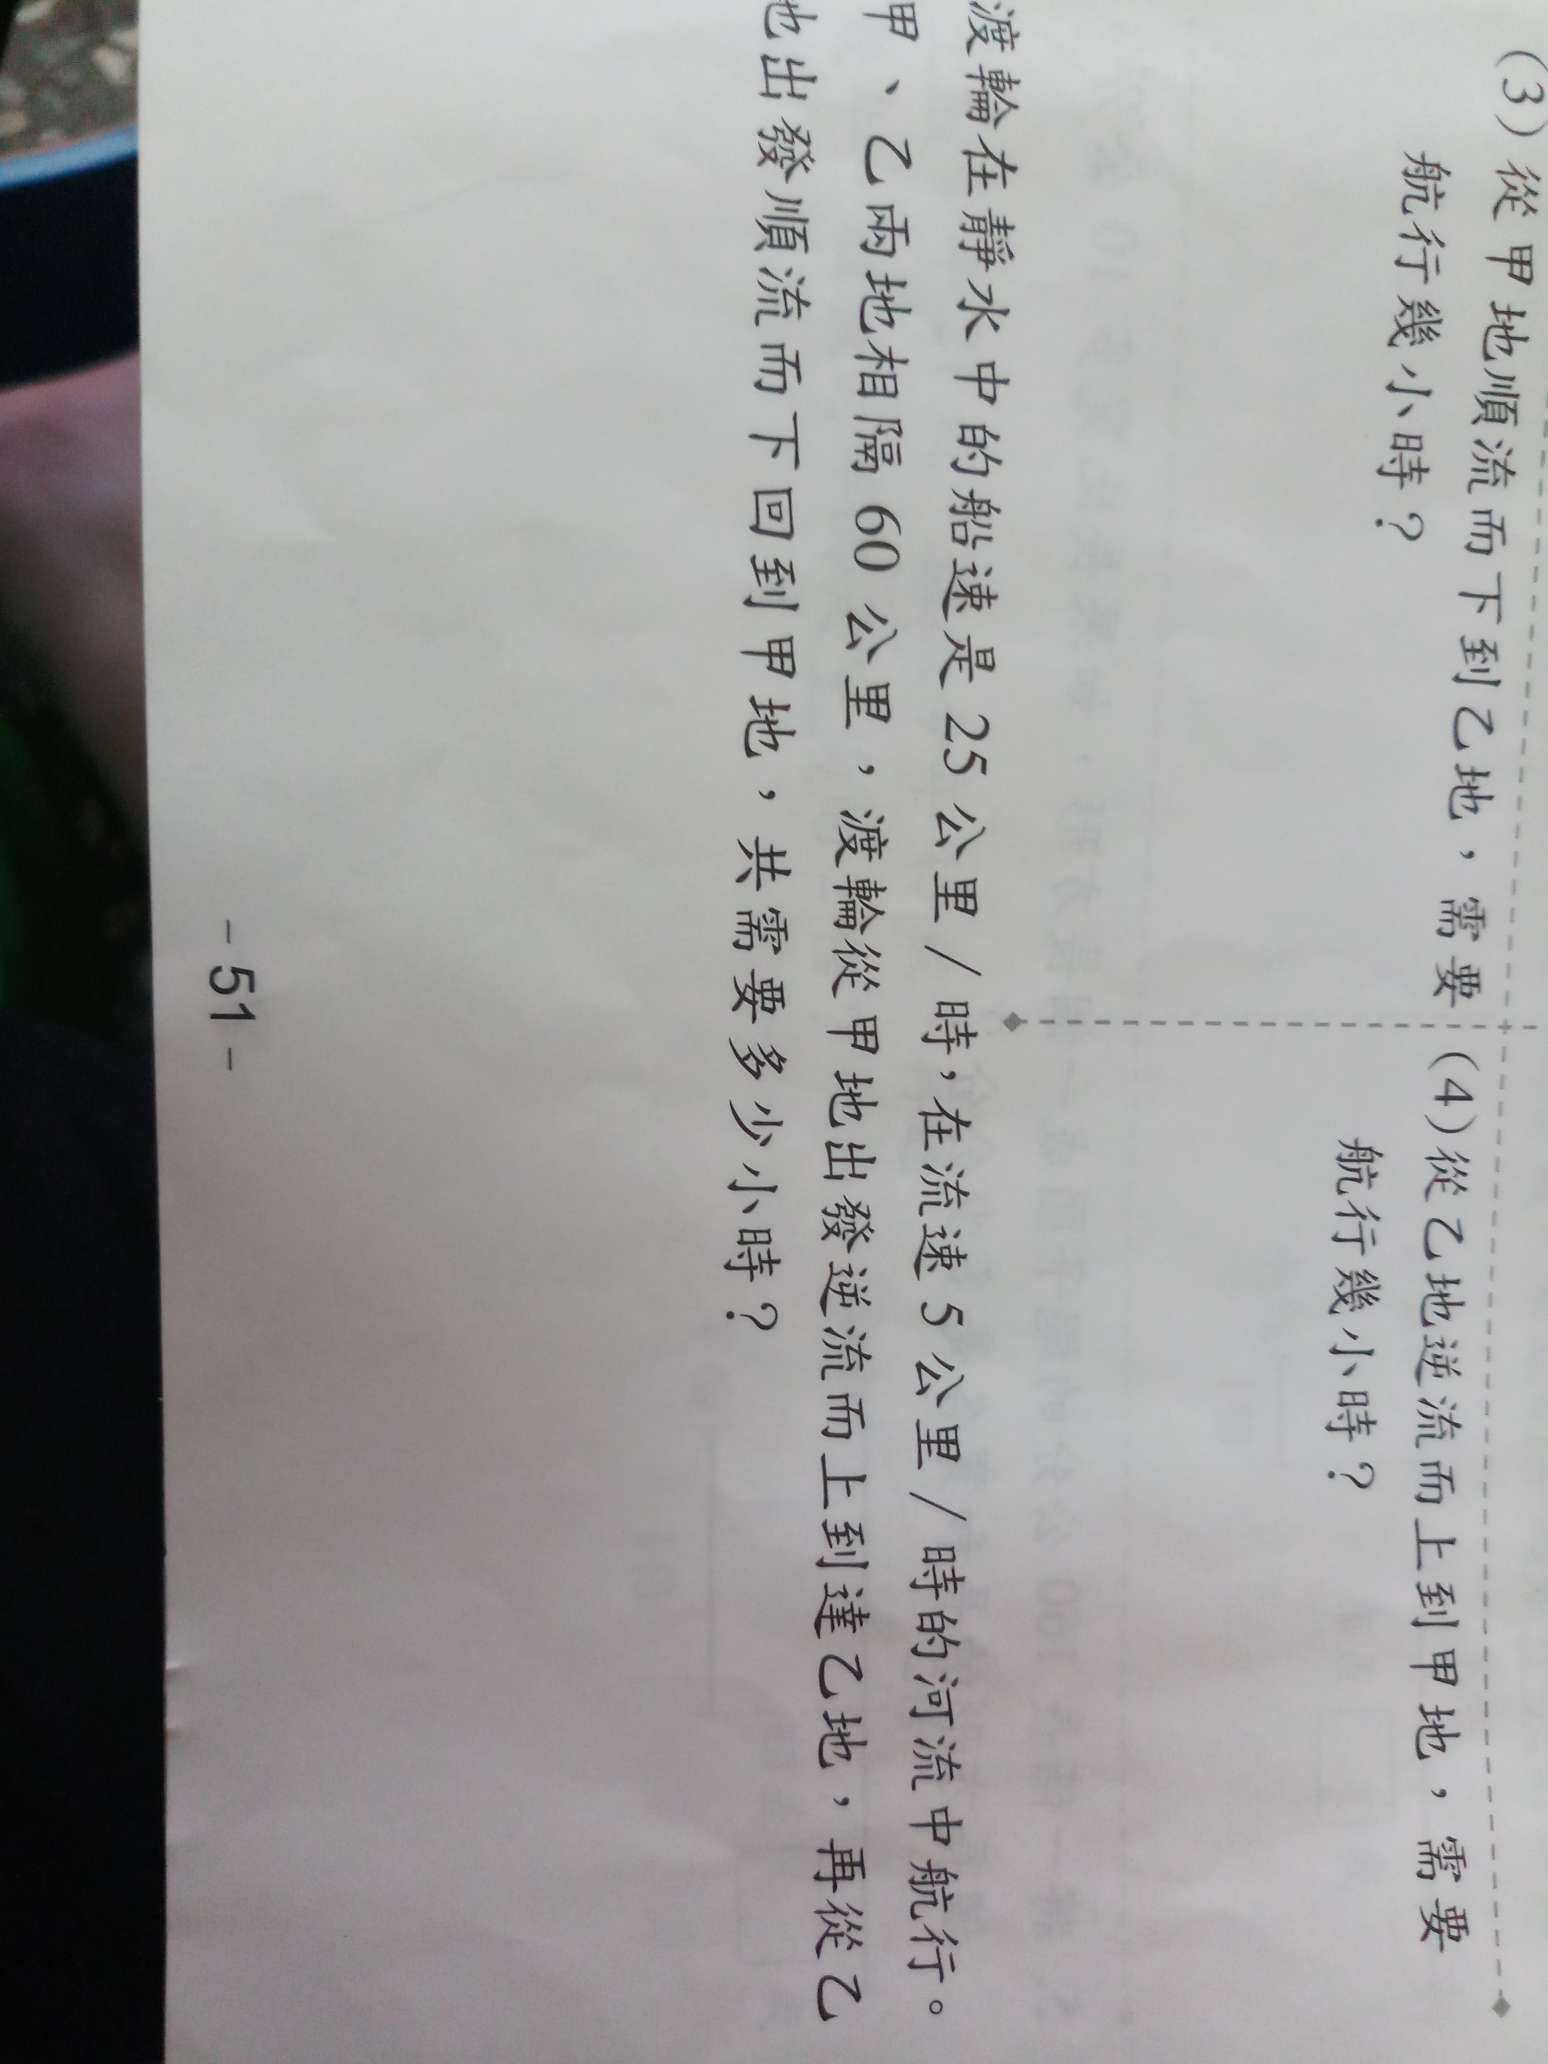 (3)從甲地順流而下到乙地，需要
航行幾小時？
(4)從乙地逆流而上到甲地，需要
航行幾小時？
渡輪在靜水中的船速是25公里/時，在流速5公里/時的河流中航行。
甲、乙兩地相隔60公里，渡輪從甲地出發逆流而上到達乙地，再從乙
地出發順流而下回到甲地，共需要多少小時？
-51-